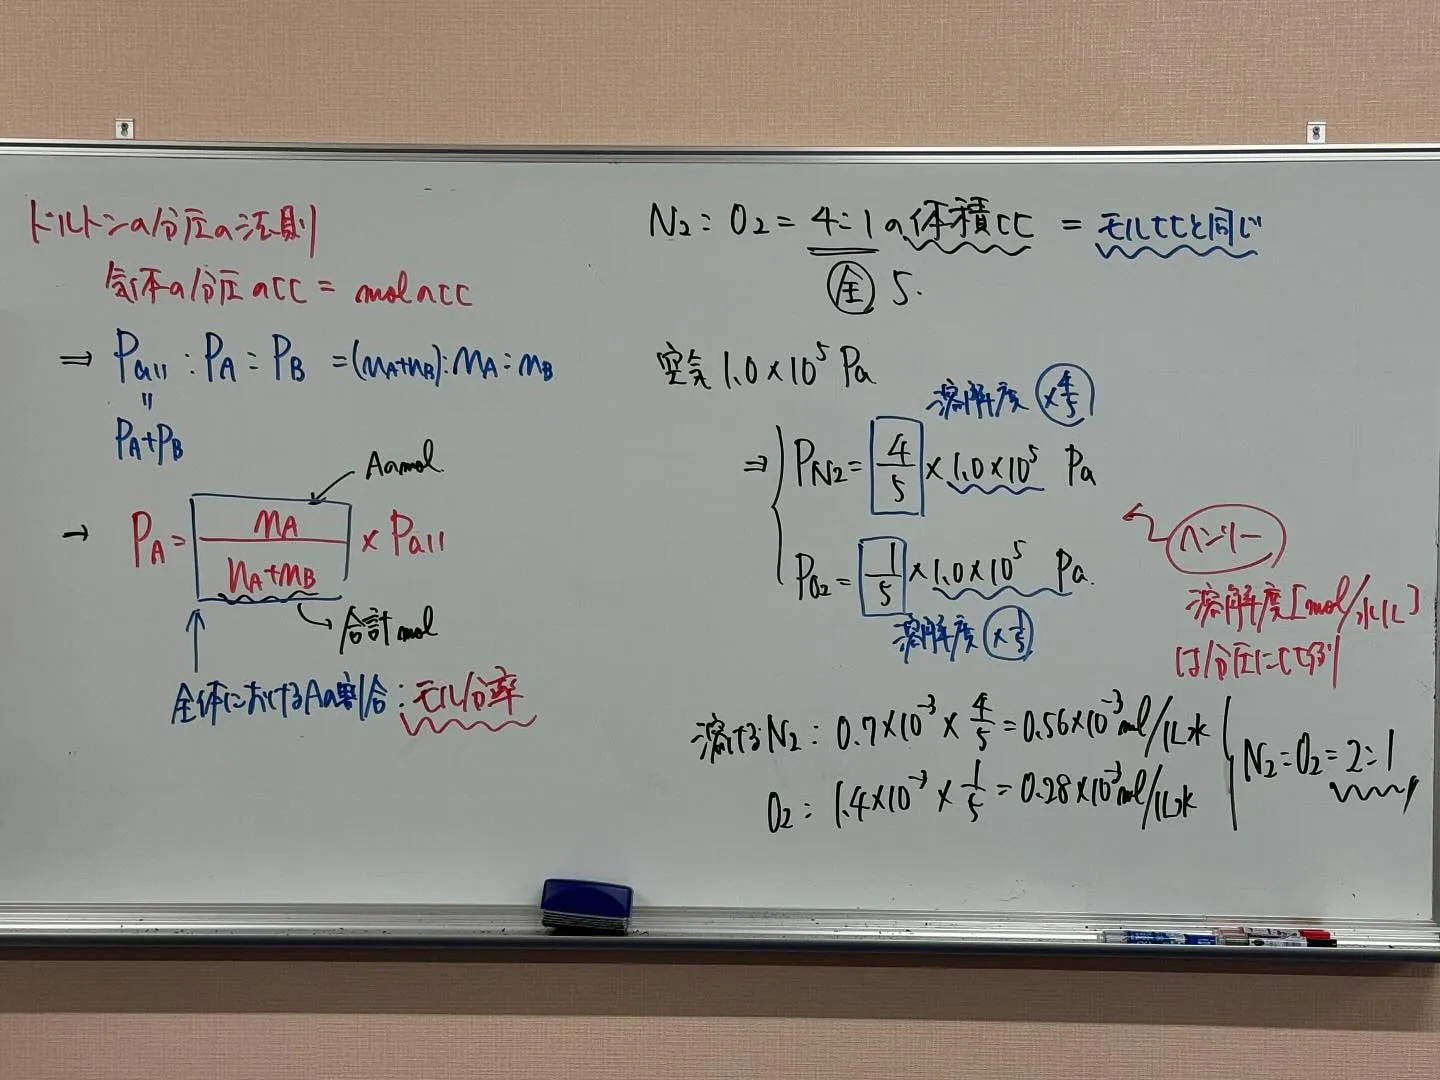 ドルトンの分圧の法則
気体の分圧の比 = molの比
⇒ Pall : PA : PB = (nA+nB) : nA : nB
"
PA+PB
Aのmol
→ PA = nA / nA+nB × Pall
合計mol
全体におけるAの割合 : モル分率
N2 : O2 = 4 : 1 の体積比 = モル比と同じ
全 5.
空気 1.0×10^5 Pa
溶解度 ×4/5
⇒ PN2 = 4/5 × 1.0×10^5 Pa
PO2 = 1/5 × 1.0×10^5 Pa.
溶解度 ×1/5
ヘンリー
溶解度[mol/水1L]
は分圧に比例
溶ける N2 : 0.7×10^-3 × 4/5 = 0.56×10^-3 mol/1L水
O2 : 1.4×10^-3 × 1/5 = 0.28×10^-3 mol/1L水
N2 : O2 = 2 : 1